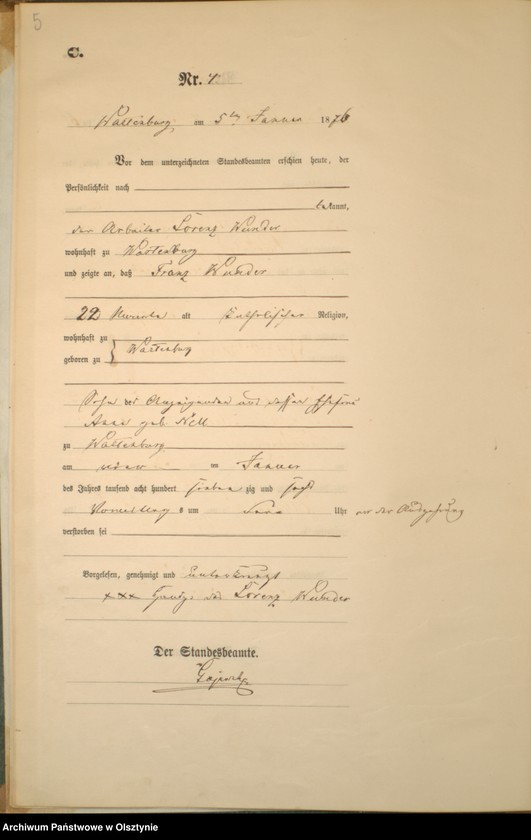 5
C.
Nr.
Wartenburg am 5ten Januar 1876
Vor dem unterzeichneten Standesbeamten erschien heute, der
Persönlichkeit nach
bekannt,
der Arbeiter Lorenz Wunder
wohnhaft zu Wartenburg
und zeigte an, daß Franz Wunder
22 Monate alt katholischer Religion,
wohnhaft zu
geboren zu Wartenburg
Sohn des Anzeigenden und dessen Ehefrau
geb Nell
zu Wartenburg
am vier im Januar
des Jahres tausend acht hundert sieben zig und sechs
Vormittag s um Uhr
verstorben sei
Vorgelesen, genehmigt und unterkreuzt
+++ Handz. des Lorenz Wunder
Der Standesbeamte.
Archiwum Państwowe w Olsztynie